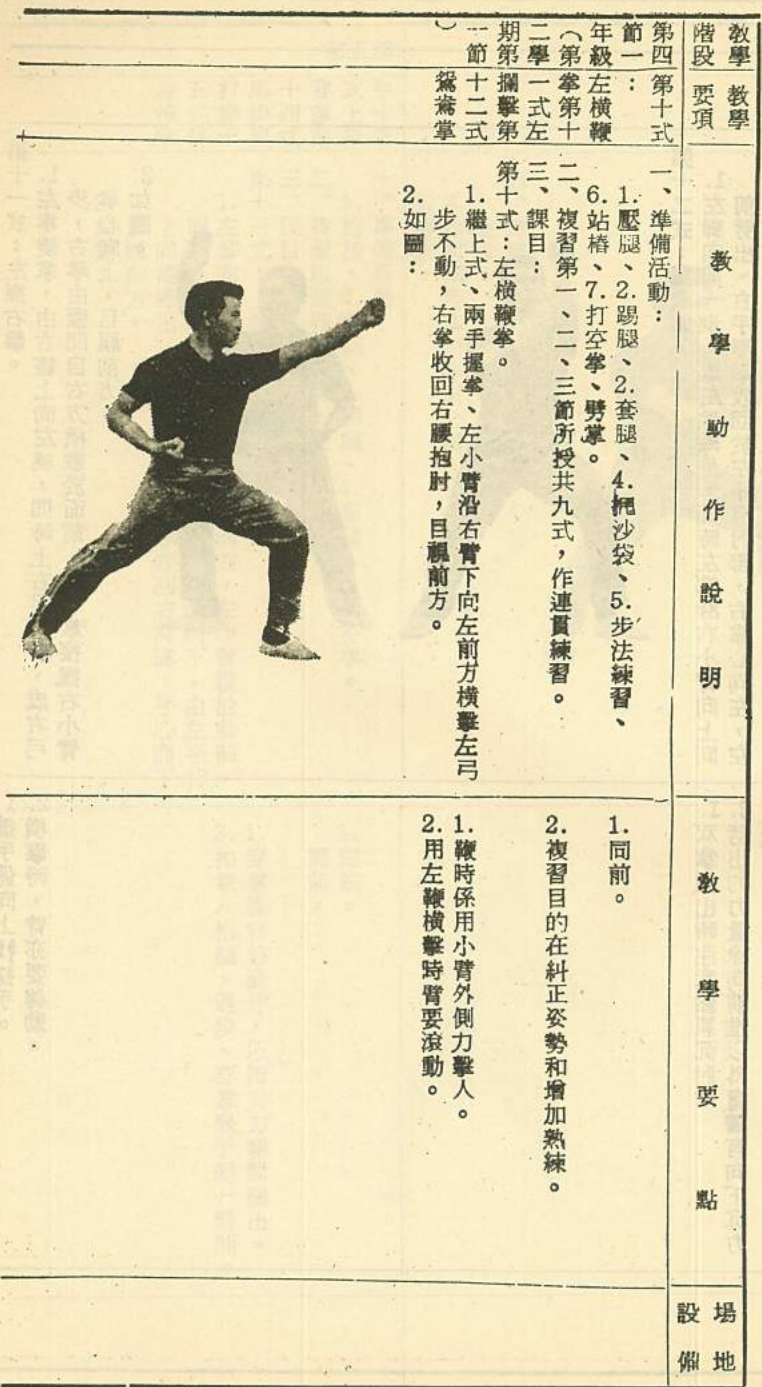 教學
階段
第四
節一
年級
（第
二學
期第
一節
）
教學
要項
第十式
：
左橫鞭
拳第十
一式左
攔擊第
十二式
鴛鴦掌
教學動作說明
一、準備活動：
1.壓腿、2.踢腿、2.套腿、4.沙袋、5.步法練習、
6.站樁、7.打空拳、劈掌。
二、複習第一、二、三節所授共九式，作連貫練習。
三、課目：
第十式：左橫鞭拳。
1.繼上式、兩手握拳、左小臂沿右臂下向左前方橫擊左弓
步不動，右拳收回右腰抱肘，目視前方。
2.如圖：
教學要點
1.同前。
2.複習目的在糾正姿勢和增加熟練。
1.鞭時係用小臂外側力擊人。
2.用左鞭橫擊時臂要滾動。
場地
設備